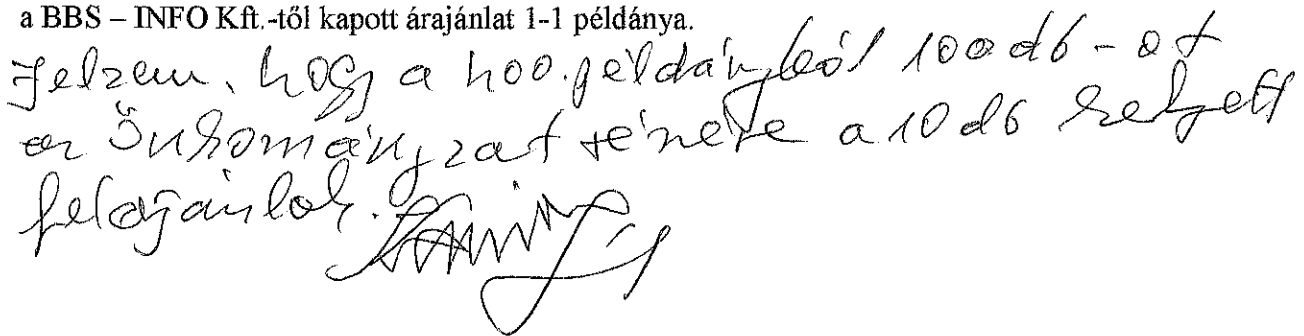 a BBS – INFO Kft.-től kapott árajánlat 1-1 példánya.
Jelzem, hogy a 400 példányból 100 db-ot
az Önkormányzat részére a 10 db helyett
felajánlok.